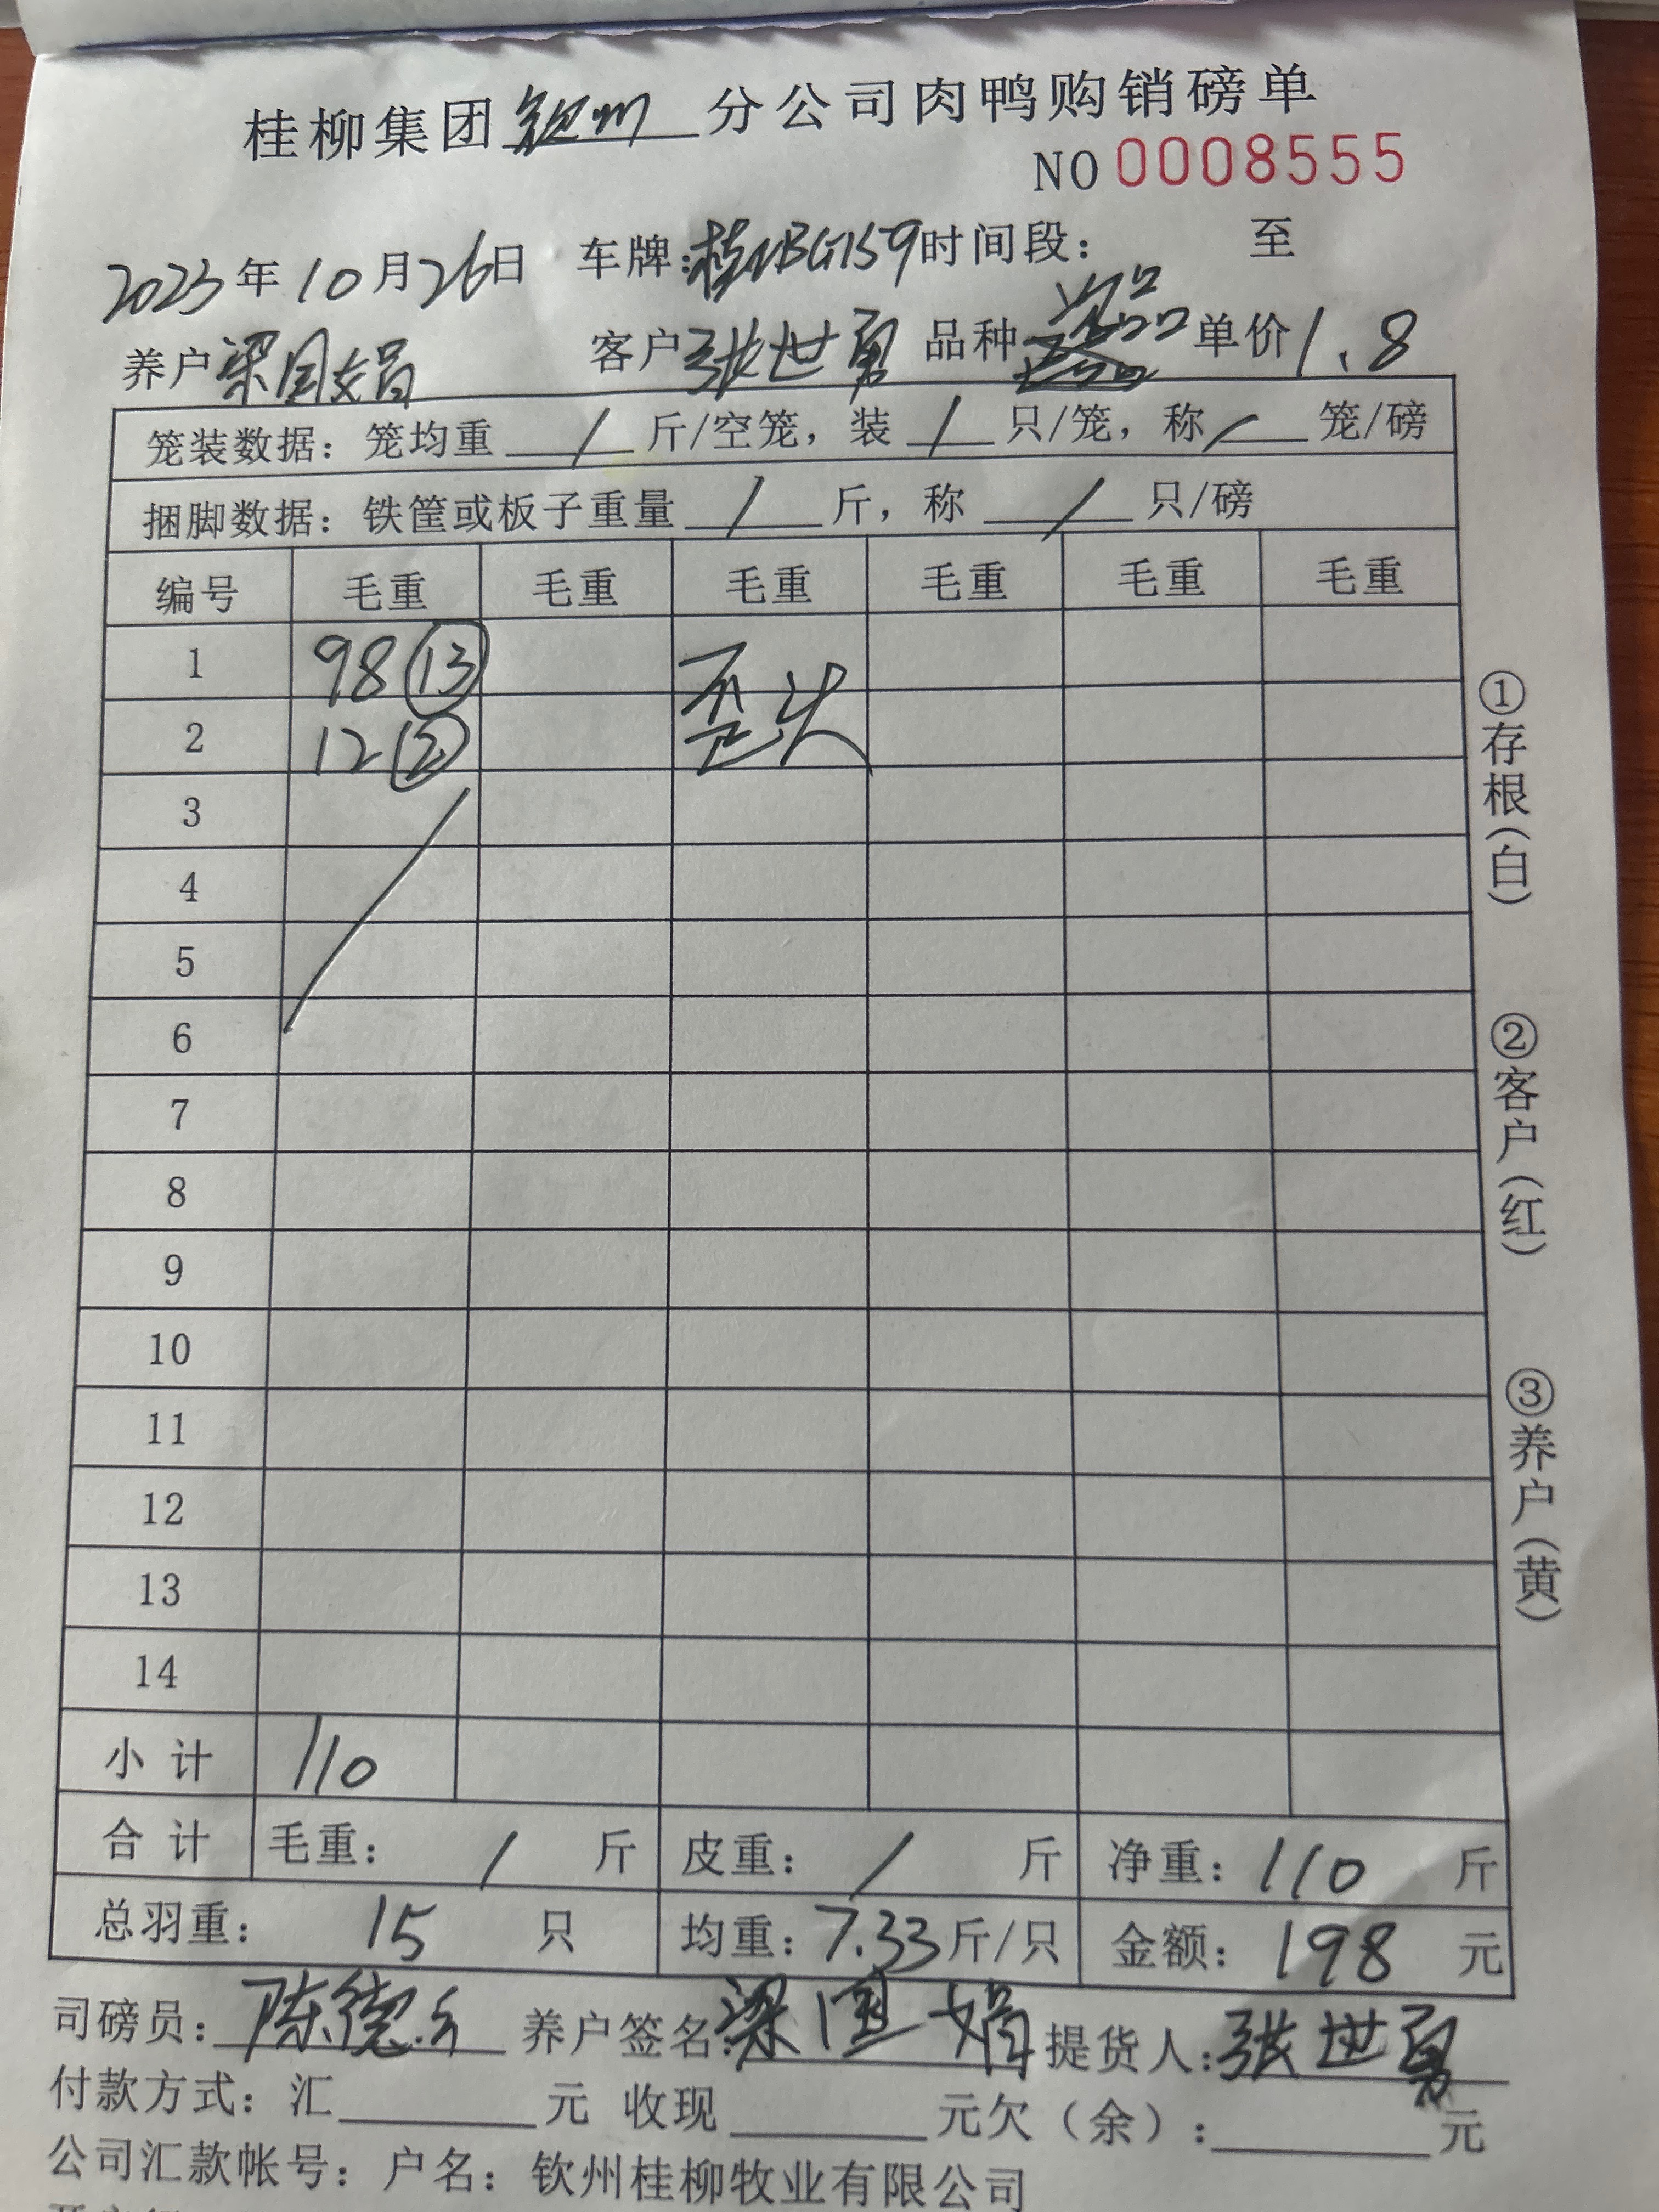 桂柳集团钦州分公司肉鸭购销磅单
NO 0008555
2023年10月26日 车牌:桂NBG159 时间段: 至
养户 梁国娟 客户 张世勇 品种 单价 1.8
笼装数据: 笼均重 / 斤/空笼, 装 / 只/笼, 称 / 笼/磅
捆脚数据: 铁筐或板子重量 / 斤, 称 / 只/磅
编号 毛重 毛重 毛重 毛重 毛重 毛重
1 98⑬
2 12②
歪头
3
4
5
6
7
8
9
10
11
12
13
14
小计 110
合计 毛重: / 斤 皮重: / 斤 净重: 110 斤
总羽重: 15 只 均重: 7.33 斤/只 金额: 198 元
司磅员: 陈德 养户签名: 梁国娟 提货人: 张世勇
付款方式: 汇 元 收现 元欠(余): 元
公司汇款帐号: 户名: 钦州桂柳牧业有限公司
①存根(白)
②客户(红)
③养户(黄)